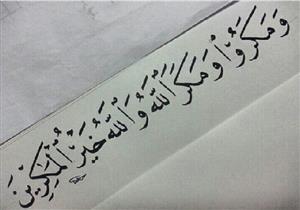 وَمَكَرُواْ وَمَكَرَ ٱللَّهُ وَٱللَّهُ خَيْرُ ٱلْمَٰكِرِينَ